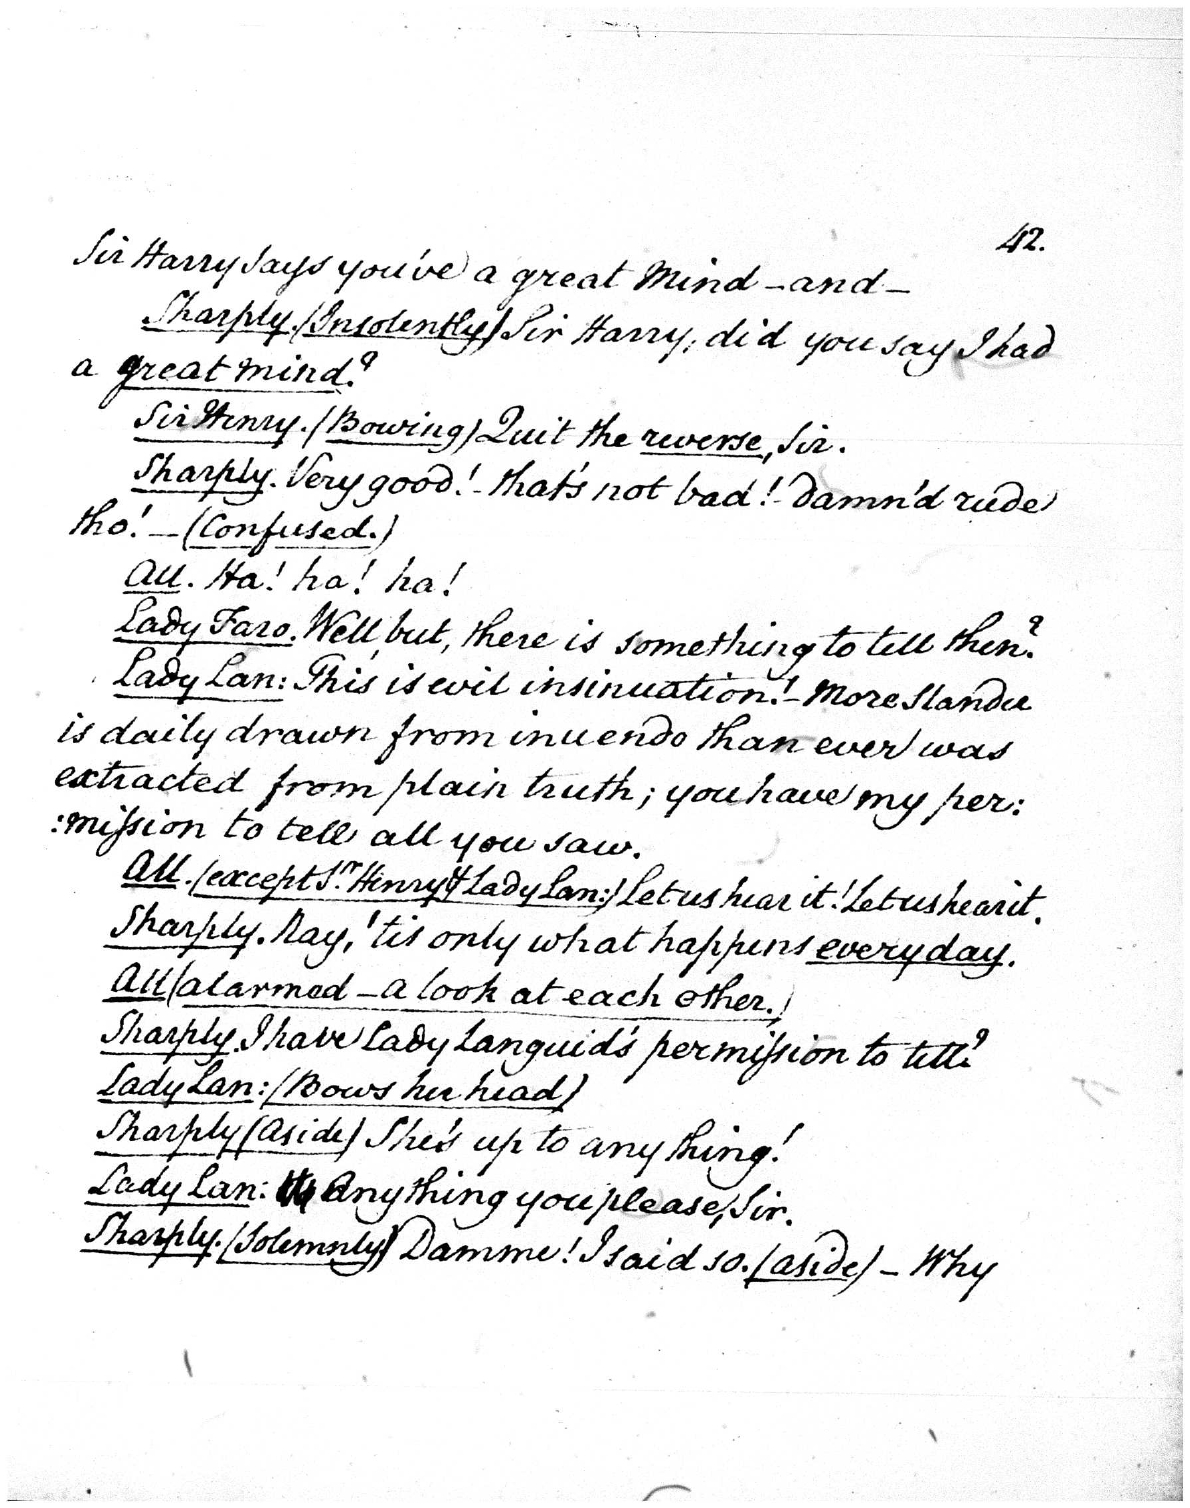 42.
Sir Harry says you've a great Mind – and –
Sharply. (Insolently) Sir Harry, did you say I had
a great mind?
Sir Henry. (Bowing) Quit the reverse, Sir.
Sharply. Very good! – that's not bad! – Damn'd rude
tho'! – (Confused.)
All. Ha! ha! ha!
Lady Faro. Well, but, there is something to tell then?
Lady Lan: This is evil insinuation! – More Slander
is daily drawn from inuendo than ever was
extracted from plain truth; you have my per:
:mission to tell all you saw.
All. (except Sr. Henry & Lady Lan:) Let us hear it! Let us hear it.
Sharply. Nay, 'tis only what happens every day.
All (alarmed – a look at each other.)
Sharply. I have Lady Languid's permission to tell?
Lady Lan: (Bows her head)
Sharply (Aside) She's up to any thing!
Lady Lan: Anything you please, Sir.
Sharply. (Solemnly) Damme! I said so. (aside) – Why